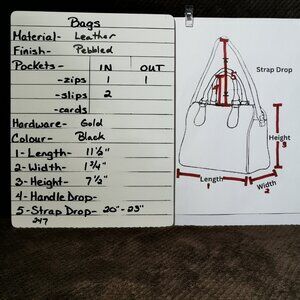 Bags
Material- Leather
Finish- Pebbled
Pockets- IN OUT
-zips 1 1
-slips 2
-cards
Hardware- Gold
Colour- Black
1-Length- 11½"
2-Width- 1¾"
3-Height- 7½"
4-Handle Drop-
5-Strap Drop- 20"-23"
247
Strap Drop
Height
3
Length
1
Width
2